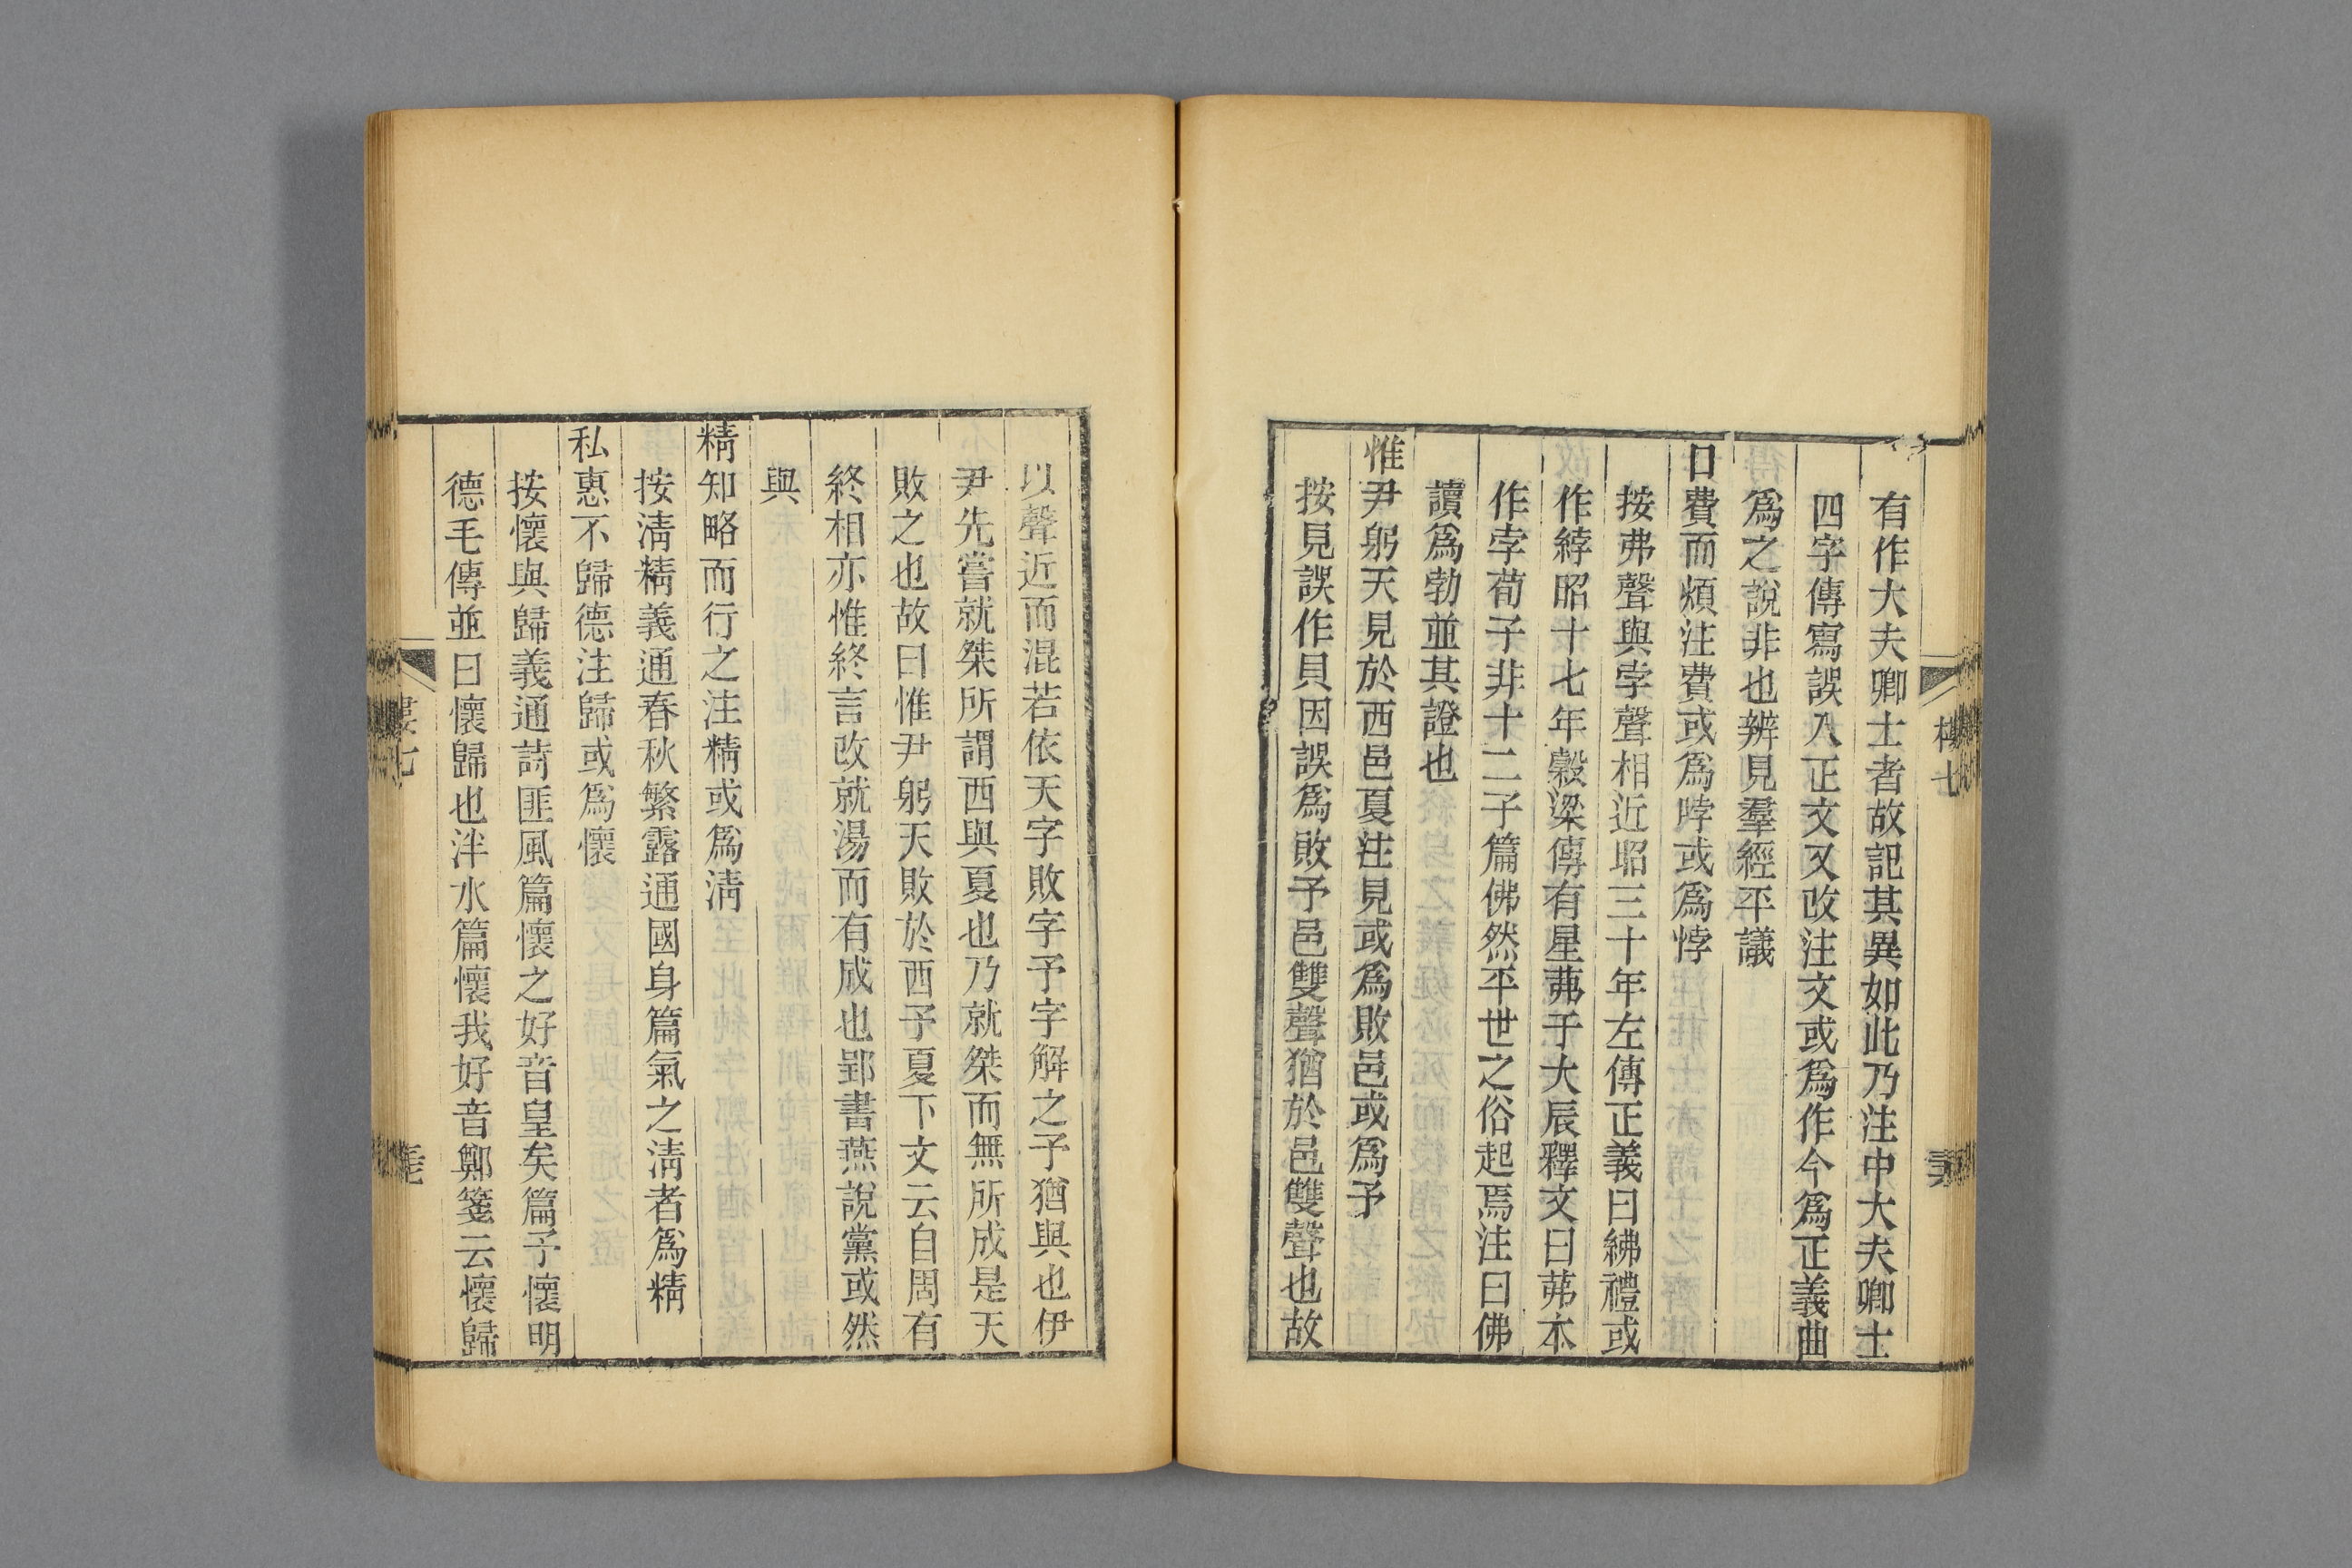 有作大夫卿士者故記其異如此乃注中大夫卿士
四字傳寫誤入正文又改注文或爲作今爲正義曲
爲之說非也辨見羣經平議
口費而煩注費或爲哱或爲悖
按弗聲與孛聲相近昭三十年左傳正義曰紼禮或
作綍昭十七年榖梁傳有星茀于大辰釋文曰茀本
作孛荀子非十二子篇佛然平世之俗起焉注曰佛
讀爲勃並其證也
惟尹躬天見於西邑夏注見或爲敗邑或爲予
按見誤作貝因誤爲敗予邑雙聲猶於邑雙聲也故
以聲近而混若依天字敗字予字解之予猶與也伊
尹先嘗就桀所謂西與夏也乃就桀而無所成是天
敗之也故曰惟尹躬天敗於西予夏下文云自周有
終相亦惟終言改就湯而有成也郢書燕說黨或然
與
精知略而行之注精或爲淸
按淸精義通春秋繁露通國身篇氣之淸者爲精
私惠不歸德注歸或爲懷
按懷與歸義通詩匪風篇懷之好音皇矣篇予懷明
德毛傳並曰懷歸也泮水篇懷我好音鄭箋云懷歸